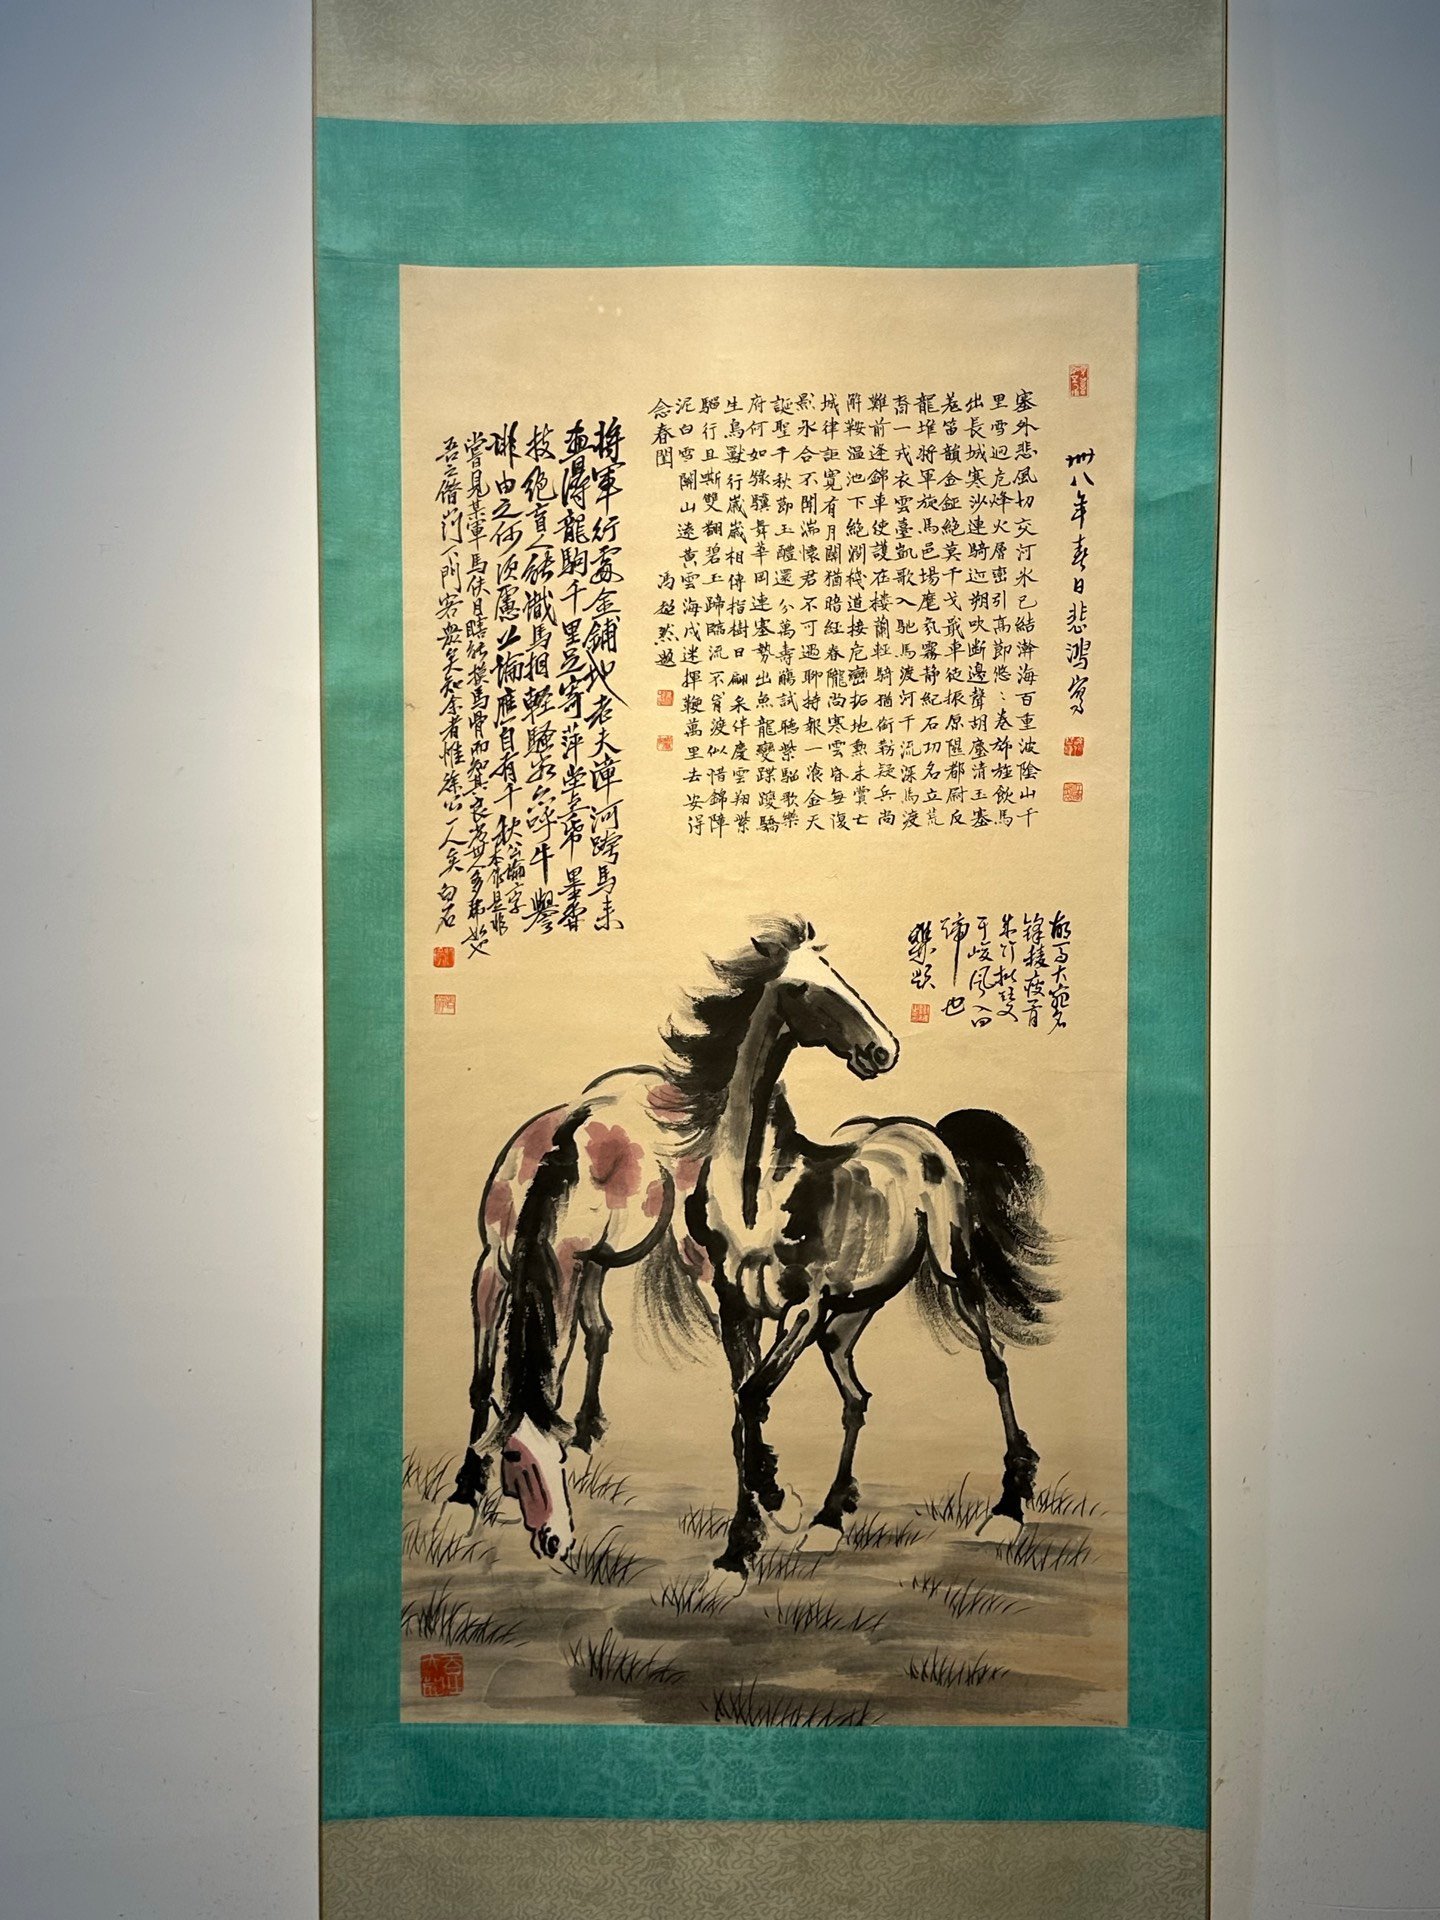 卅八年春日悲鴻寫
塞外悲風切交河氷已結瀚海百重波陰山千
里雪迥危烽火層巒引高節悠〻卷旆旌飲馬
出長城寒沙連騎迹朔吹斷邊聲胡塵清玉塞
羌笛韻金鉦絕漠干戈戢車徒振原隰都尉反
龍堆將軍旋馬邑揚麾氛霧靜紀石功名立荒
裔一戎衣雲臺凱歌入馳馬渡河干流深馬渡
難前逢錦車使護在樓蘭輕騎猶銜勒疑兵尚
解鞍溫池下絕澗棧道接危巒拓地勲未賞亡
城律詎寛有月關猶暗經春隴尚寒雲昏無復
影氷合不聞湍懷君不可遇聊持報一飡金天
誕聖千秋節玉醴還分萬壽觴試聽紫騮歌樂
府何如騄驥舞華岡連塞勢出魚龍變蹀躞驕
生鳥獸行歲歲相傳指樹日翩來伴慶雲翔紫
騮行且嘶雙翻碧玉蹄臨流不肯渡似惜錦障
泥白雪關山遠黃雲海戍迷揮鞭萬里去安得
念春閨
馮超然題
將軍行處金鋪地老夫漳河跨馬來
畫得龍駒千里足寄萍堂上常墨香
技絕盲人能識馬相輕騷客亦呼牛譽
誹由之何須慮公論應自有千秋
公論字
本作是非
嘗見某軍馬伕目瞎能摸馬骨而知其良
吾之借山門下門客衆矣知余者惟徐公一人矣白石
胡馬大宛名
鋒稜瘦骨
成竹批雙
耳峻風入四
蹄輕也
樊題